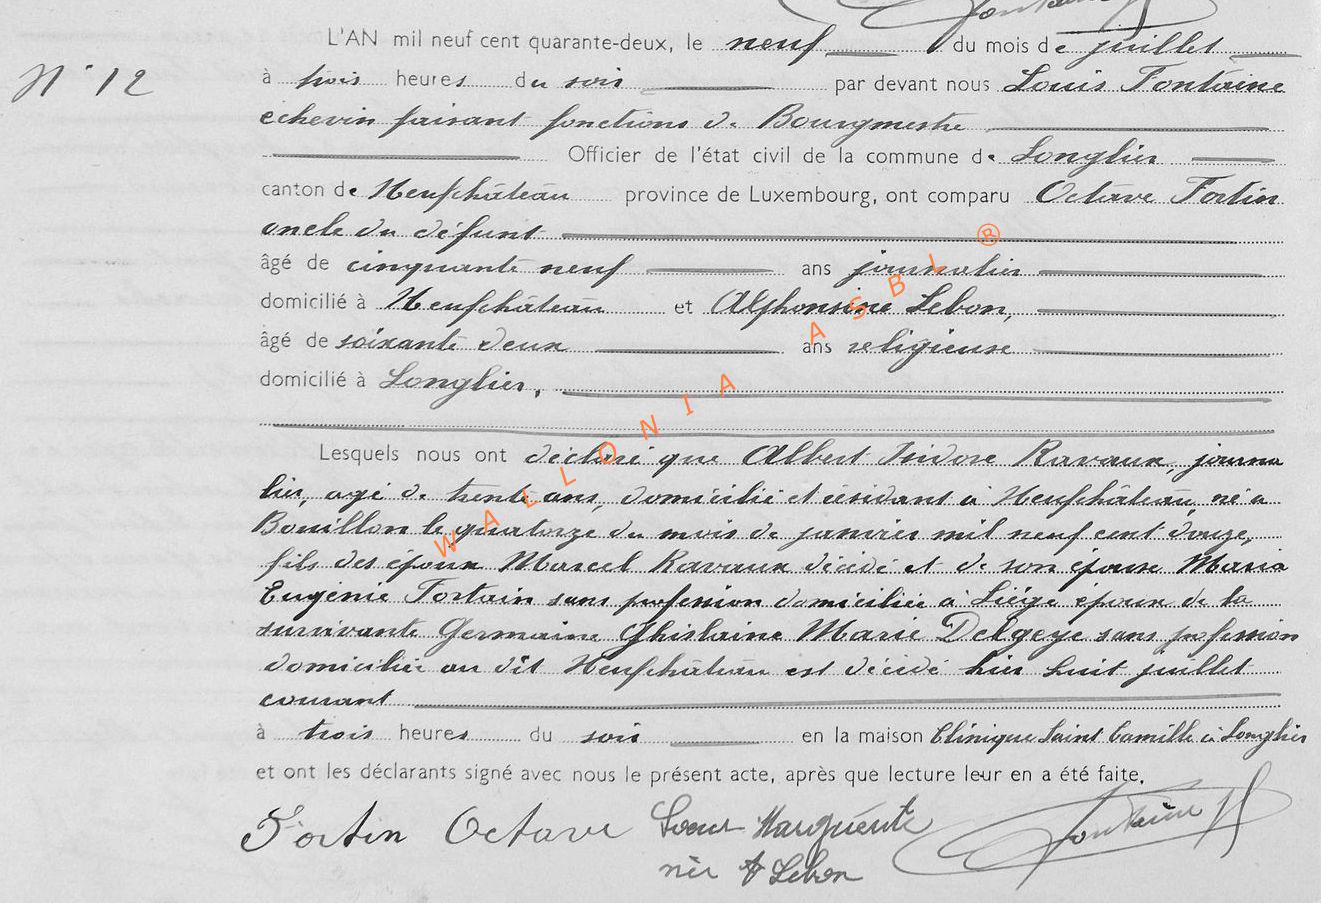 L'AN mil neuf cent quarante-deux, le neuf du mois de juillet
N° 12
à trois heures du soir par devant nous Louis Fontaine
echevin faisant fonctions de Bourgmestre
Officier de l'état civil de la commune de Longlier
canton de Neufchâteau province de Luxembourg, ont comparu Octave Fortin
oncle du défunt
âgé de cinquante neuf ans journalier
domicilié à Neufchâteau et Alphonsine Lebon,
âgé de soixante deux ans religieuse
domicilié à Longlier,
Lesquels nous ont déclaré que Albert Isidore Ravaux, journa
lier, agé de trente ans, domicilié et résidant à Neufchâteau, né à
Bouillon le quatorze du mois de janvier mil neuf cent douze,
fils des époux Marcel Ravaux décédé et de son épouse Maria
Eugénie Fortain sans profession domiciliée à Liége époux de la
survivante Germaine Ghislaine Marie Delgeye sans profession
domiciliée au dit Neufchâteau est décédé hier huit juillet
courant
à trois heures du soir en la maison Clinique Saint Camille à Longlier
et ont les déclarants signé avec nous le présent acte, après que lecture leur en a été faite.
Fortin Octave Soeur Marguerite Fontaine
née A Lebon
WALLONIA ASBL ®